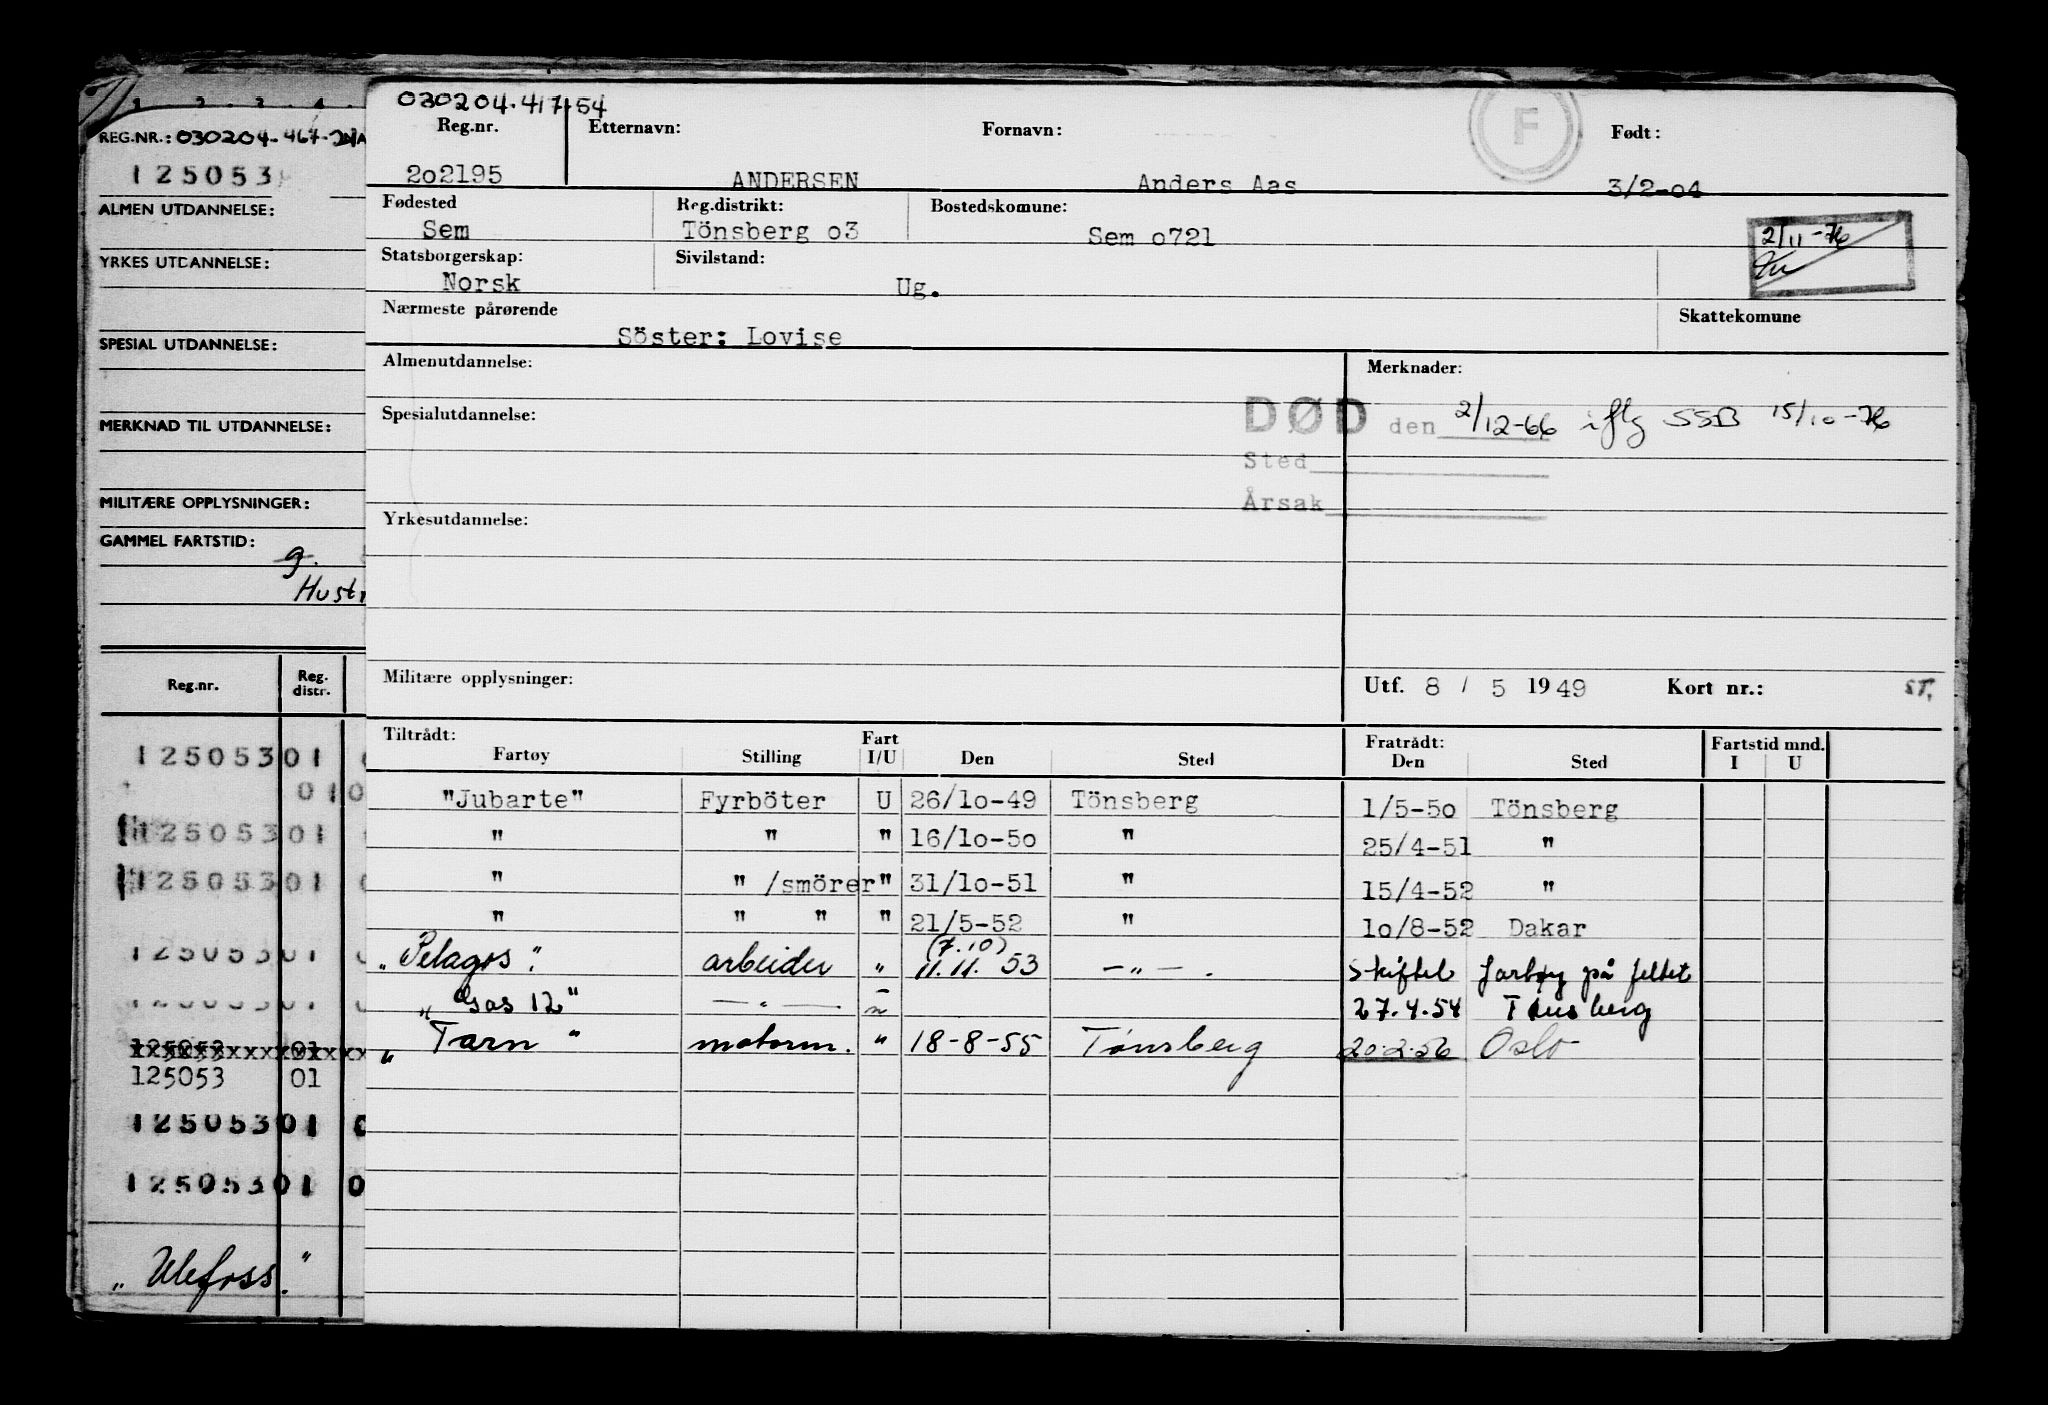 REG.NR.: 030204-467-
125053
ALMEN UTDANNELSE:
YRKES UTDANNELSE:
SPESIAL UTDANNELSE:
MERKNAD TIL UTDANNELSE:
MILITÆRE OPPLYSNINGER:
GAMMEL FARTSTID:
g.
Hustr
Reg.nr. Reg. distr.
125053 01 0
010
125053 01 0
125053 01 0
125053 01 0
125053 01 0
125053 01
125053 01
125053 01 0
125053 01 0
„Ulefoss."
030204.417.54
Reg.nr. Etternavn: Fornavn: Født:
F
2o2195 ANDERSEN Anders Aas 3/2-o4
Fødested Reg.distrikt: Bostedskomune:
Sem Tönsberg o3 Sem o721
2/11-76
Statsborgerskap: Sivilstand:
Norsk Ug.
Nærmeste pårørende Skattekomune
Söster: Lovise
Almenutdannelse: Merknader:
Spesialutdannelse:
DØD den 2/12-66 iflg SSB 15/10-76
Sted
Årsak
Yrkesutdannelse:
Militære opplysninger: Utf. 8 / 5 1949 Kort nr.: ST.
Tiltrådt: Fart Fratrådt: Fartstid mnd.
Fartøy Stilling I/U Den Sted Den Sted I U
"Jubarte" Fyrböter U 26/1o-49 Tönsberg 1/5-5o Tönsberg
" " " 16/1o-5o " 25/4-51 "
" " /smörer " 31/1o-51 " 15/4-52 "
" " " " 21/5-52 " 1o/8-52 Dakar
(7.10)
„Pelagos". arbeider " 11.11. 53 —„—. skiftet fartøy på feltet
„Gos 12" —„— " 27.4.54 Tønsberg
„Tarn" motorm. " 18-8-55 Tønsberg 20.2.56 Oslo